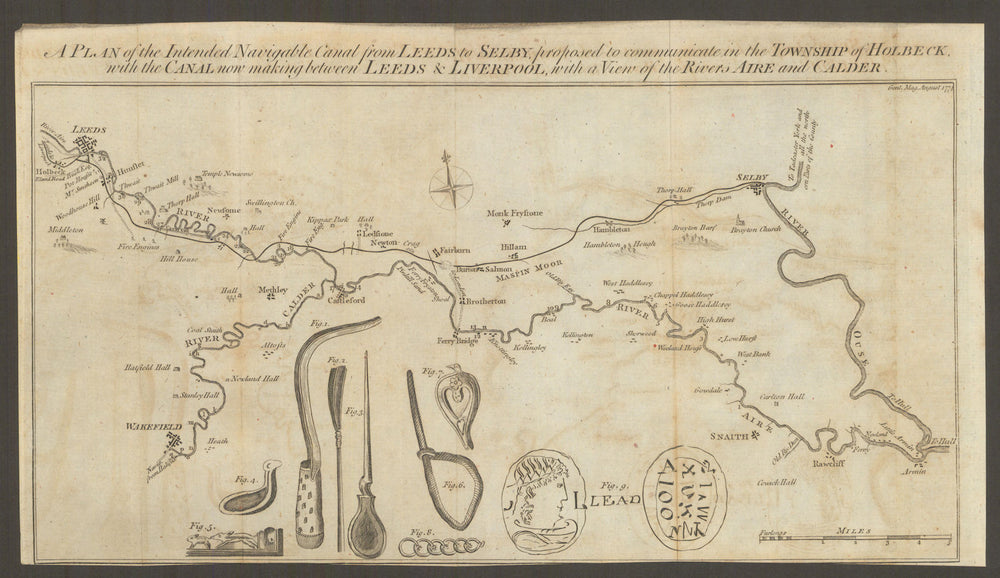 A PLAN of the Intended Navigable Canal from LEEDS to SELBY, proposed to communicate in the TOWNSHIP of HOLBECK,
with the CANAL now making between LEEDS & LIVERPOOL, with a View of the Rivers AIRE and CALDER.
Gent. Mag. August 1774
River Aire
LEEDS
Holbeck
Hunslet
Thwait
Thwait Mill
Temple Newsome
Woodhouse Hill
Thorp Hall
Middleton
RIVER
Newsome
Swillington Ch.
Hall
Fire Engines
Hill House
Fire Engine
Fire Eng.
Kippax Park
Hall
Ledstone
Newton
Craig
Fairburn
Methley
Hall
CALDER
Castleford
Coal Staith
RIVER
Altofts
Hatfield Hall
Newland Hall
Stanley Hall
WAKEFIELD
Heath
Monk Frystone
Hillam
Burton Salmon
MASPIN MOOR
Brotherton
Ferry Bridge
Kellingley
Beal
Kellington
Hambleton
Hambleton Hough
Thorp Hall
Thorp Dam
SELBY
To Tadcaster York and
all the north
ern Parts of the County
Brayton Barf
Brayton Church
RIVER
OUSE
West Haddlesey
Chappel Haddlesey
RIVER
Sherwood
High Hurst
Low Hurst
West Bank
Gowdale
Carlton Hall
AIRE
SNAITH
Rawcliff
Cowick Hall
Newland
Ferry
Little Armin
Armin
To Hull
To Hull
Fig. 1.
Fig. 2.
Fig. 3.
Fig. 4.
Fig. 5.
Fig. 6.
Fig. 7.
Fig. 8.
Fig. 9.
LLEAD
Furlongs
MILES
1
2
3
4
5